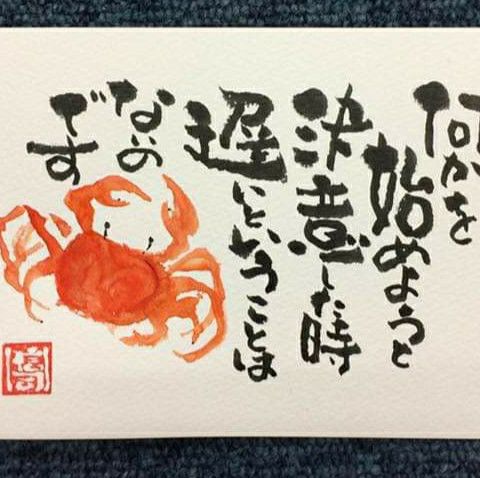 何かを
始めようと
決意した時
遅いということは
ないの
です